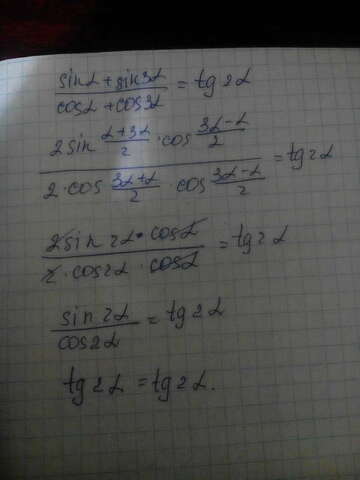 (sinα + sin3α)/(cosα + cos3α) = tg2α
(2sin (α+3α)/2 · cos (3α-α)/2)/(2·cos (3α+α)/2 · cos (3α-α)/2) = tg2α
(2sin2α · cosα)/(2·cos2α · cosα) = tg2α
sin2α/cos2α = tg2α
tg2α = tg2α.